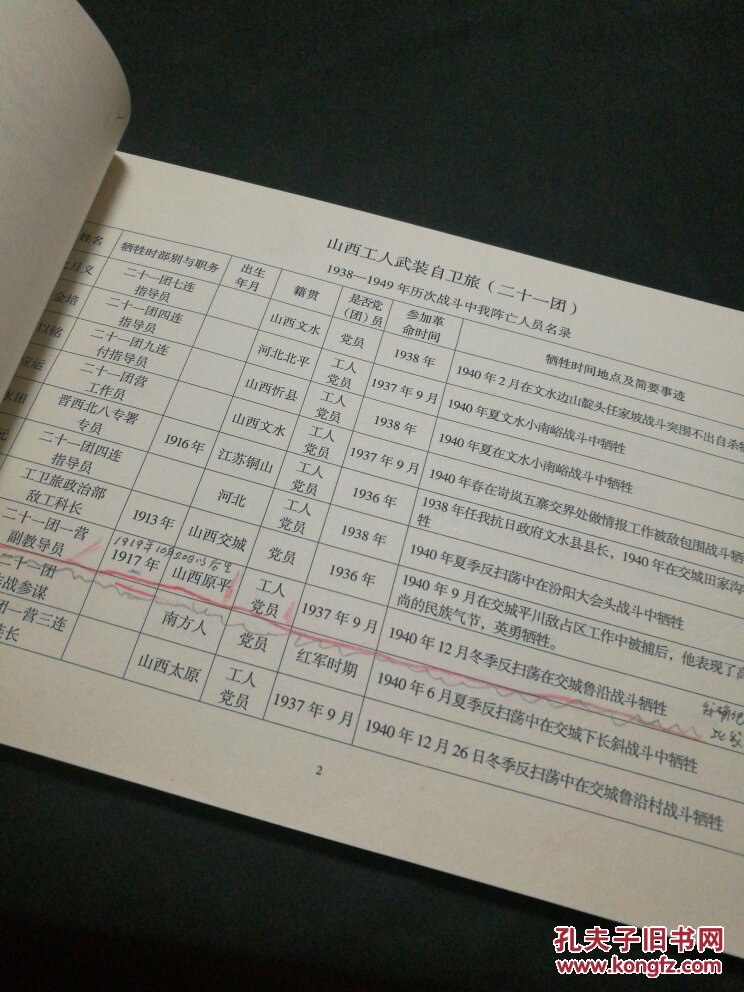 山西工人武装自卫旅（二十一团）
1938—1949年历次战斗中我阵亡人员名录
姓名 牺牲时部别与职务 出生年月 籍贯 是否党（团）员 参加革命时间 牺牲时间地点及简要事迹
月义 二十一团七连指导员 山西文水 党员 1938年 1940年2月在文水边山靛头任家坡战斗突围不出自杀牺
金培 二十一团四连指导员 河北北平 工人党员 1937年9月 1940年夏文水小南峪战斗中牺牲
以铭 二十一团九连付指导员 山西忻县 工人党员 1938年 1940年夏在文水小南峪战斗中牺牲
应运 二十一团营工作员 山西文水 工人党员 1937年9月 1940年春在岢岚五寨交界处做情报工作被敌包围战斗牺牲
水田 晋西北八专署专员 1916年 江苏铜山 工人党员 1936年 1938年任我抗日政府文水县县长，1940年在交城田家沟
元 二十一团四连指导员 河北 工人党员 1938年 1940年夏季反扫荡在汾阳大会头战斗中牺牲
工卫旅政治部敌工科长 1913年 山西交城 党员 1936年 1940年9月在交城平川敌占区工作中被捕后，他表现了高尚的民族气节，英勇牺牲。
二十一团一营副教导员 1919年10月20日 1917年 山西原平 工人党员 1937年9月 1940年12月冬季反扫荡在交城鲁沿战斗牺牲
二十一团作战参谋 南方人 党员 红军时期 1940年6月夏季反扫荡中在交城下长斜战斗中牺牲
团一营三连连长 山西太原 工人党员 1937年9月 1940年12月26日冬季反扫荡中在交城鲁沿村战斗牺牲
2
孔夫子旧书网
www.kongfz.com